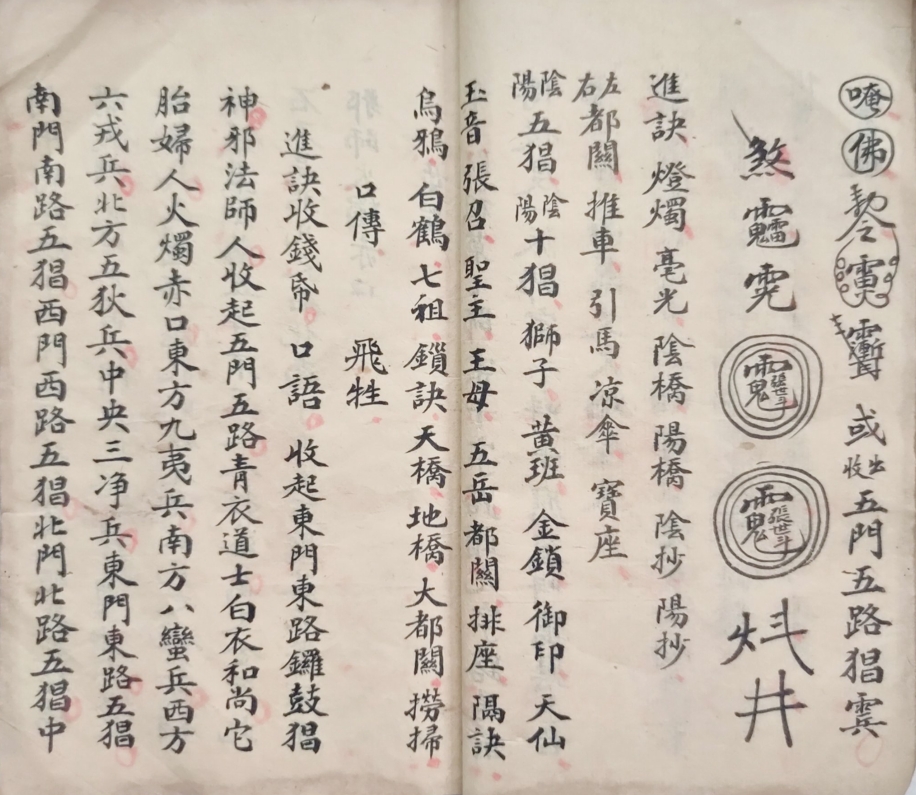 唵佛勅令 或出收五門五路猖
煞
張世斗
張世斗
井
進訣 燈燭 毫光 陰橋 陽橋 陰抄 陽抄
左右都關 推車 引馬 凉傘 寶座
陰陽五猖 陰陽十猖 獅子 黃班 金鎖 御印 天仙
玉音 張召 聖主 王母 五岳 都關 排座 隔訣
烏鴉 白鶴 七祖 鎖訣 天橋 地橋 大都關 撈掃
口傳 飛牲
進訣收錢帋 口語 收起東門東路鑼鼓猖
神邪法師人收起五門五路青衣道士白衣和尚它
胎婦人火燭赤口東方九夷兵南方八蠻兵西方
六戎兵北方五狄兵中央三净兵東門東路五猖
南門南路五猖西門西路五猖北門北路五猖中